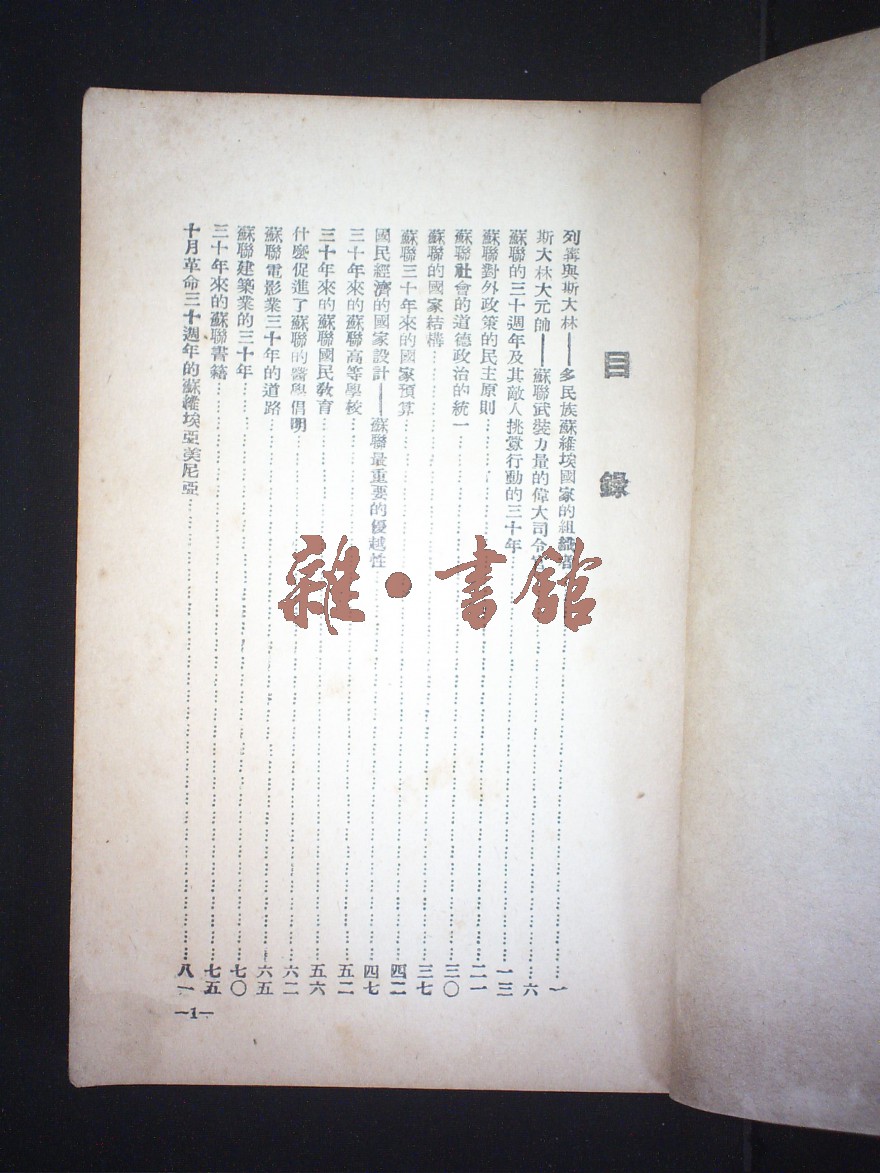 目錄
列寧與斯大林——多民族蘇維埃國家的組織者……一
斯大林大元帥——蘇聯武裝力量的偉大司令官……六
蘇聯的三十週年及其敵人挑釁行動的三十年……一三
蘇聯對外政策的民主原則……二一
蘇聯社會的道德政治的統一……三〇
蘇聯的國家結構……三七
蘇聯三十年來的國家預算……四二
國民經濟的國家設計——蘇聯最重要的優越性……四七
三十年來的蘇聯高等學校……五二
三十年來的蘇聯國民教育……五六
什麼促進了蘇聯的醫學倡明……六二
蘇聯電影業三十年的道路……六五
蘇聯建築業的三十年……七〇
三十年來的蘇聯書籍……七五
十月革命三十週年的蘇維埃亞美尼亞……八一
—1—
雜·書館